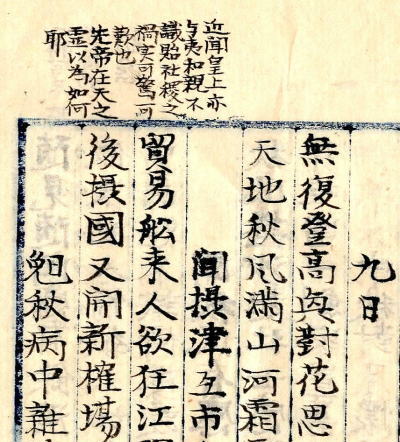 近聞皇上亦
与夷和親不
識貽社稷之
禍实可驚可
歎也
先帝在天之
霊以為如何
耶
九日
無復登高與對花思
天地秋風滿山河霜
聞摂津互市
貿易舩来人欲狂江
後摂國又開新榷場
秋病中雜